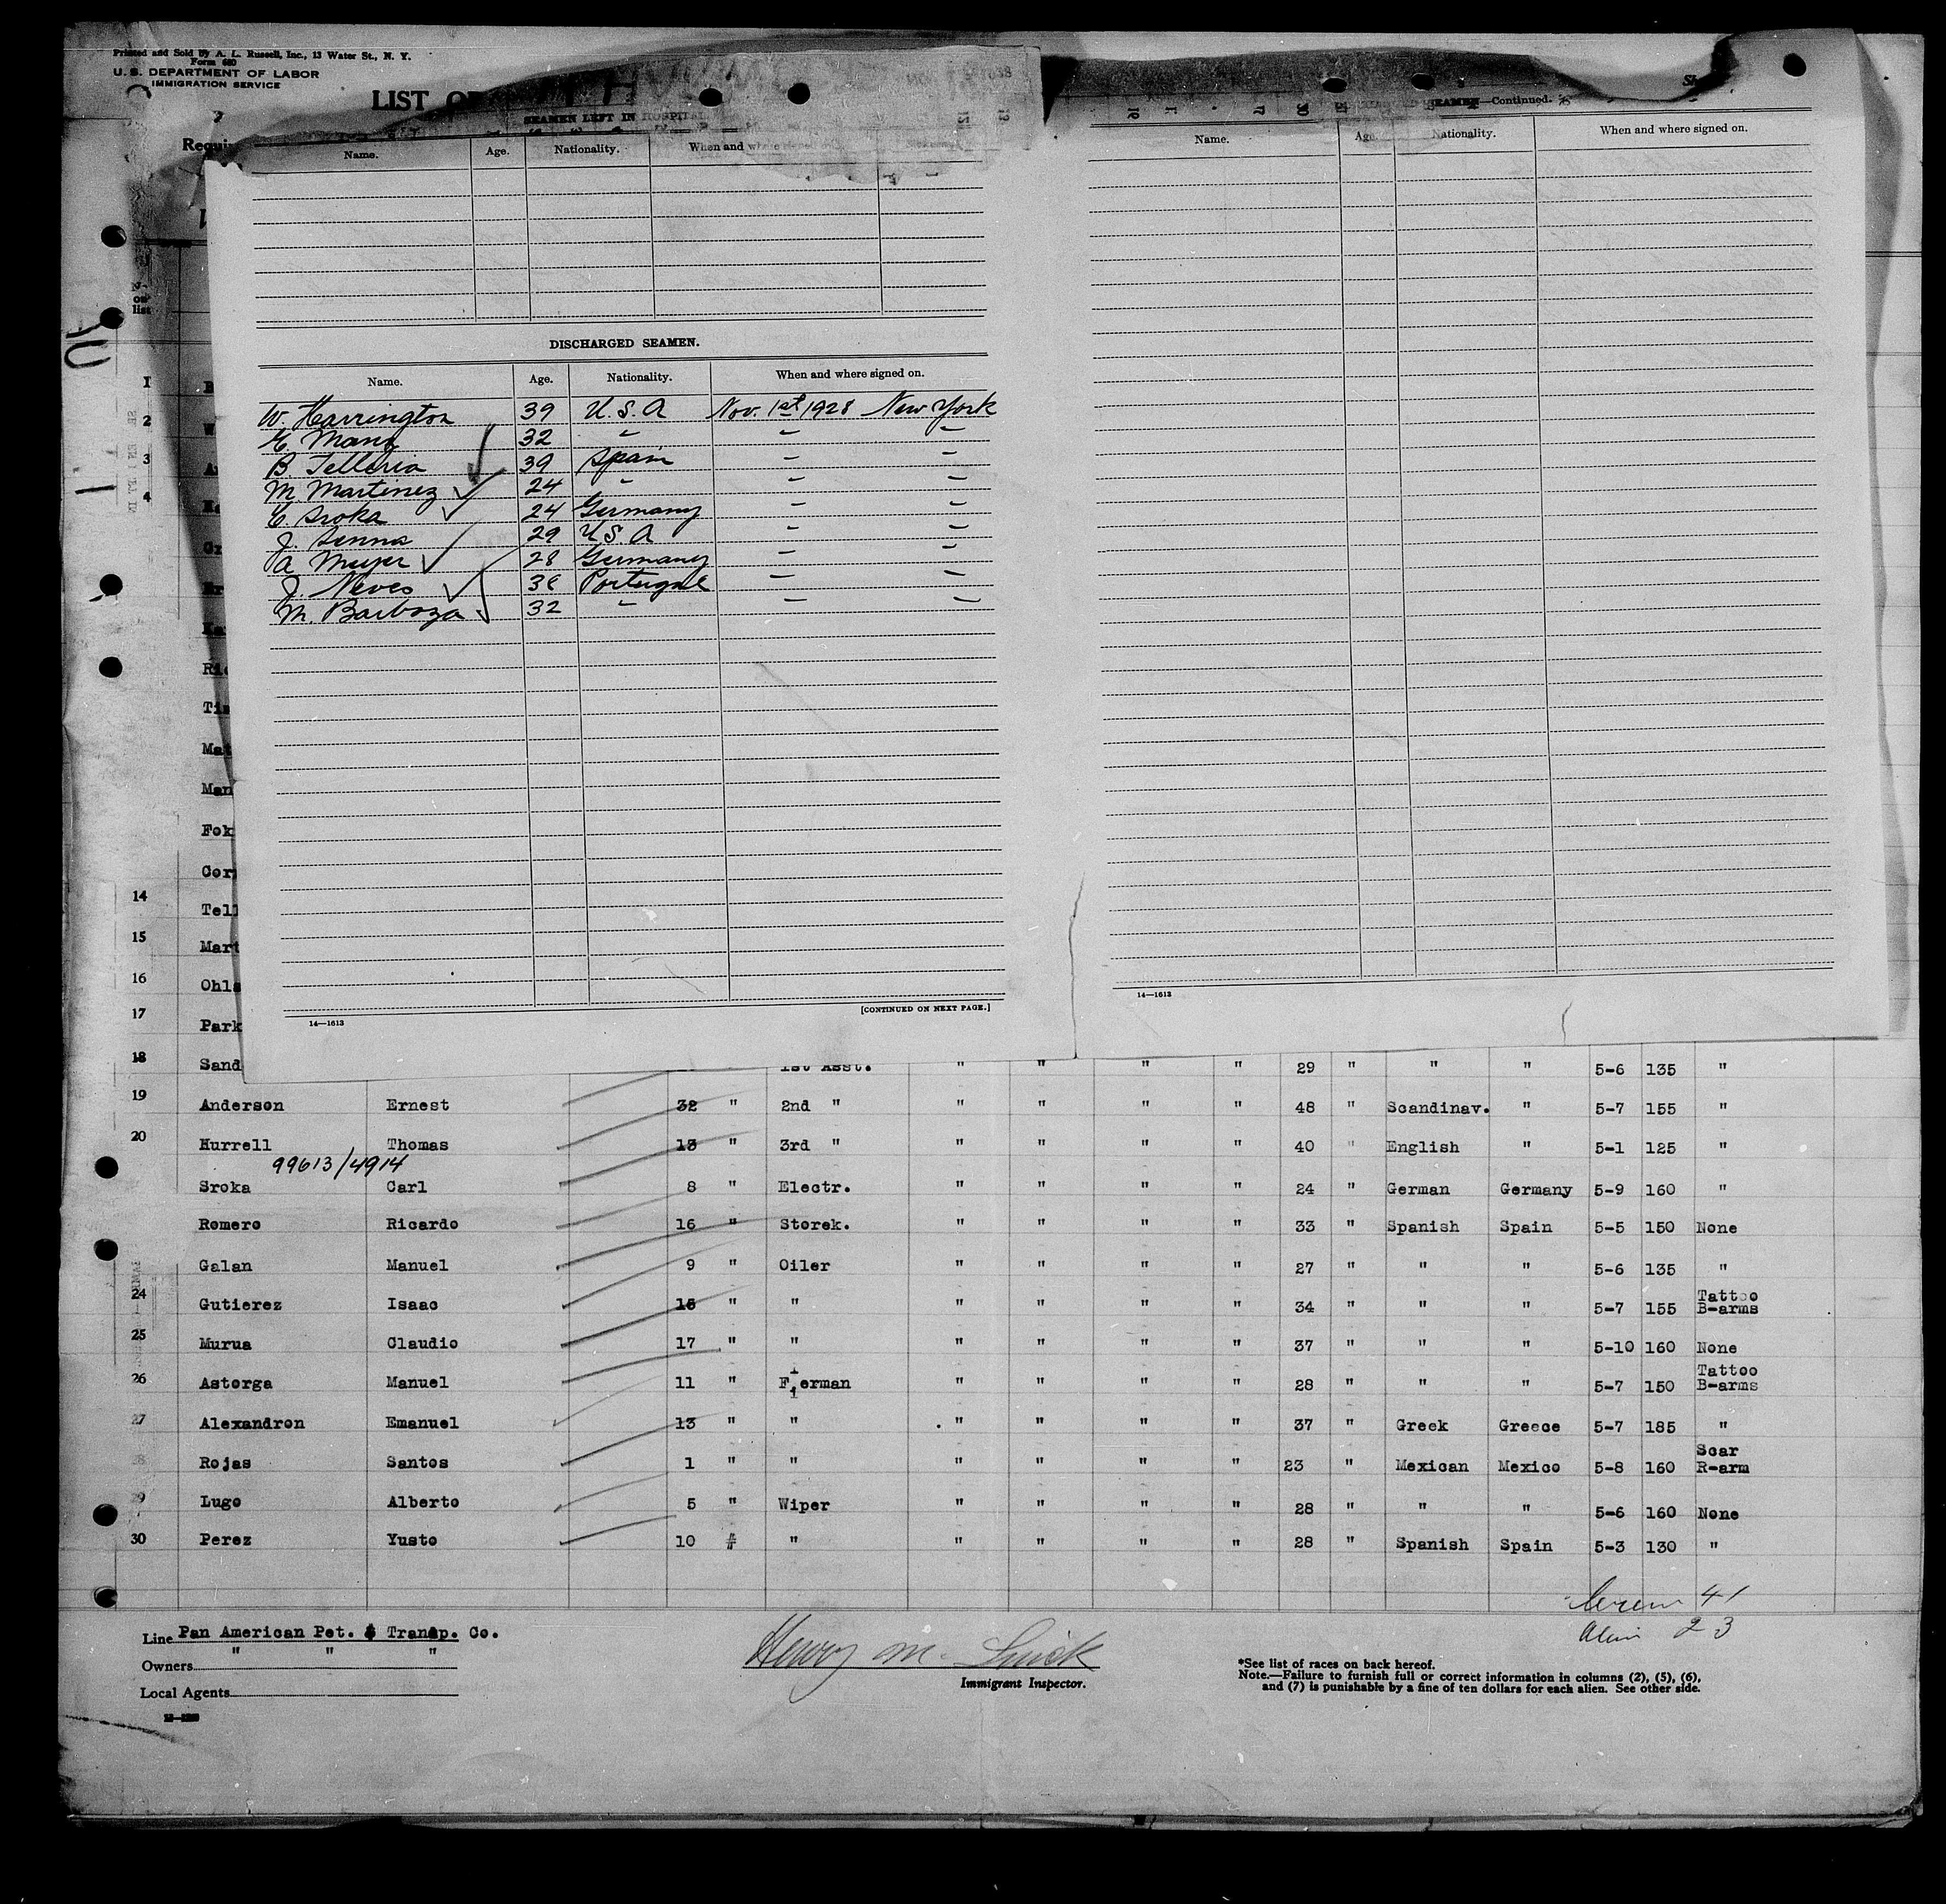 Printed and Sold by A. L. Russell, Inc., 13 Water St., N. Y.
Form 680
U. S. DEPARTMENT OF LABOR
IMMIGRATION SERVICE
LIST OF
SEAMEN LEFT IN HOSPITAL
Name. Age. Nationality. When and where signed on.
DISCHARGED SEAMEN.
Name. Age. Nationality. When and where signed on.
W. Harrington 39 U.S.A Nov. 1st 1928 New York
E. Mann 32 " " "
B. Telleria 39 Spain " "
M. Martinez 24 " " "
C. Sroka 24 Germany " "
J. Senna 29 U.S.A " "
A Meyer 28 Germany " "
J. Neves 38 Portugal " "
M. Barboza 32 " " "
[CONTINUED ON NEXT PAGE.]
14—1613
SEAMEN—Continued.
Name. Age. Nationality. When and where signed on.
14—1613
No. on list
1
2
3
4
Ric
Mat
Man
Fok
Cor
14 Tell
15 Mart
16 Ohls
17 Park
18 Sand 1st Asst. " " " " 29 " " " 5-6 135 "
19 Anderson Ernest 32 " 2nd " " " " " 48 " Scandinav. " 5-7 155 "
20 Hurrell Thomas 13 " 3rd " " " " " 40 " English " 5-1 125 "
99613/4914
Sroka Carl 8 " Electr. " " " " 24 " German Germany 5-9 160 "
Romero Ricardo 16 " Storek. " " " " 33 " Spanish Spain 5-5 150 None
Galan Manuel 9 " Oiler " " " " 27 " " " 5-6 135 "
24 Gutierez Isaac 15 " " " " " " 34 " " " 5-7 155 Tattoo B-arms
25 Murua Claudio 17 " " " " " " 37 " " " 5-10 160 None
26 Astorga Manuel 11 " Fierman " " " " 28 " " " 5-7 150 Tattoo B-arms
27 Alexandron Emanuel 13 " " " " " " 37 " Greek Greece 5-7 185 "
28 Rojas Santos 1 " " " " " " 23 " Mexican Mexico 5-8 160 Scar R-arm
29 Lugo Alberto 5 " Wiper " " " " 28 " " " 5-6 160 None
30 Perez Yusto 10 # " " " " " 28 " Spanish Spain 5-3 130 "
41
23
Line Pan American Pet. & Transp. Co.
Owners " " "
Local Agents
Henry M.
Immigrant Inspector.
*See list of races on back hereof.
Note.—Failure to furnish full or correct information in columns (2), (5), (6),
and (7) is punishable by a fine of ten dollars for each alien. See other side.